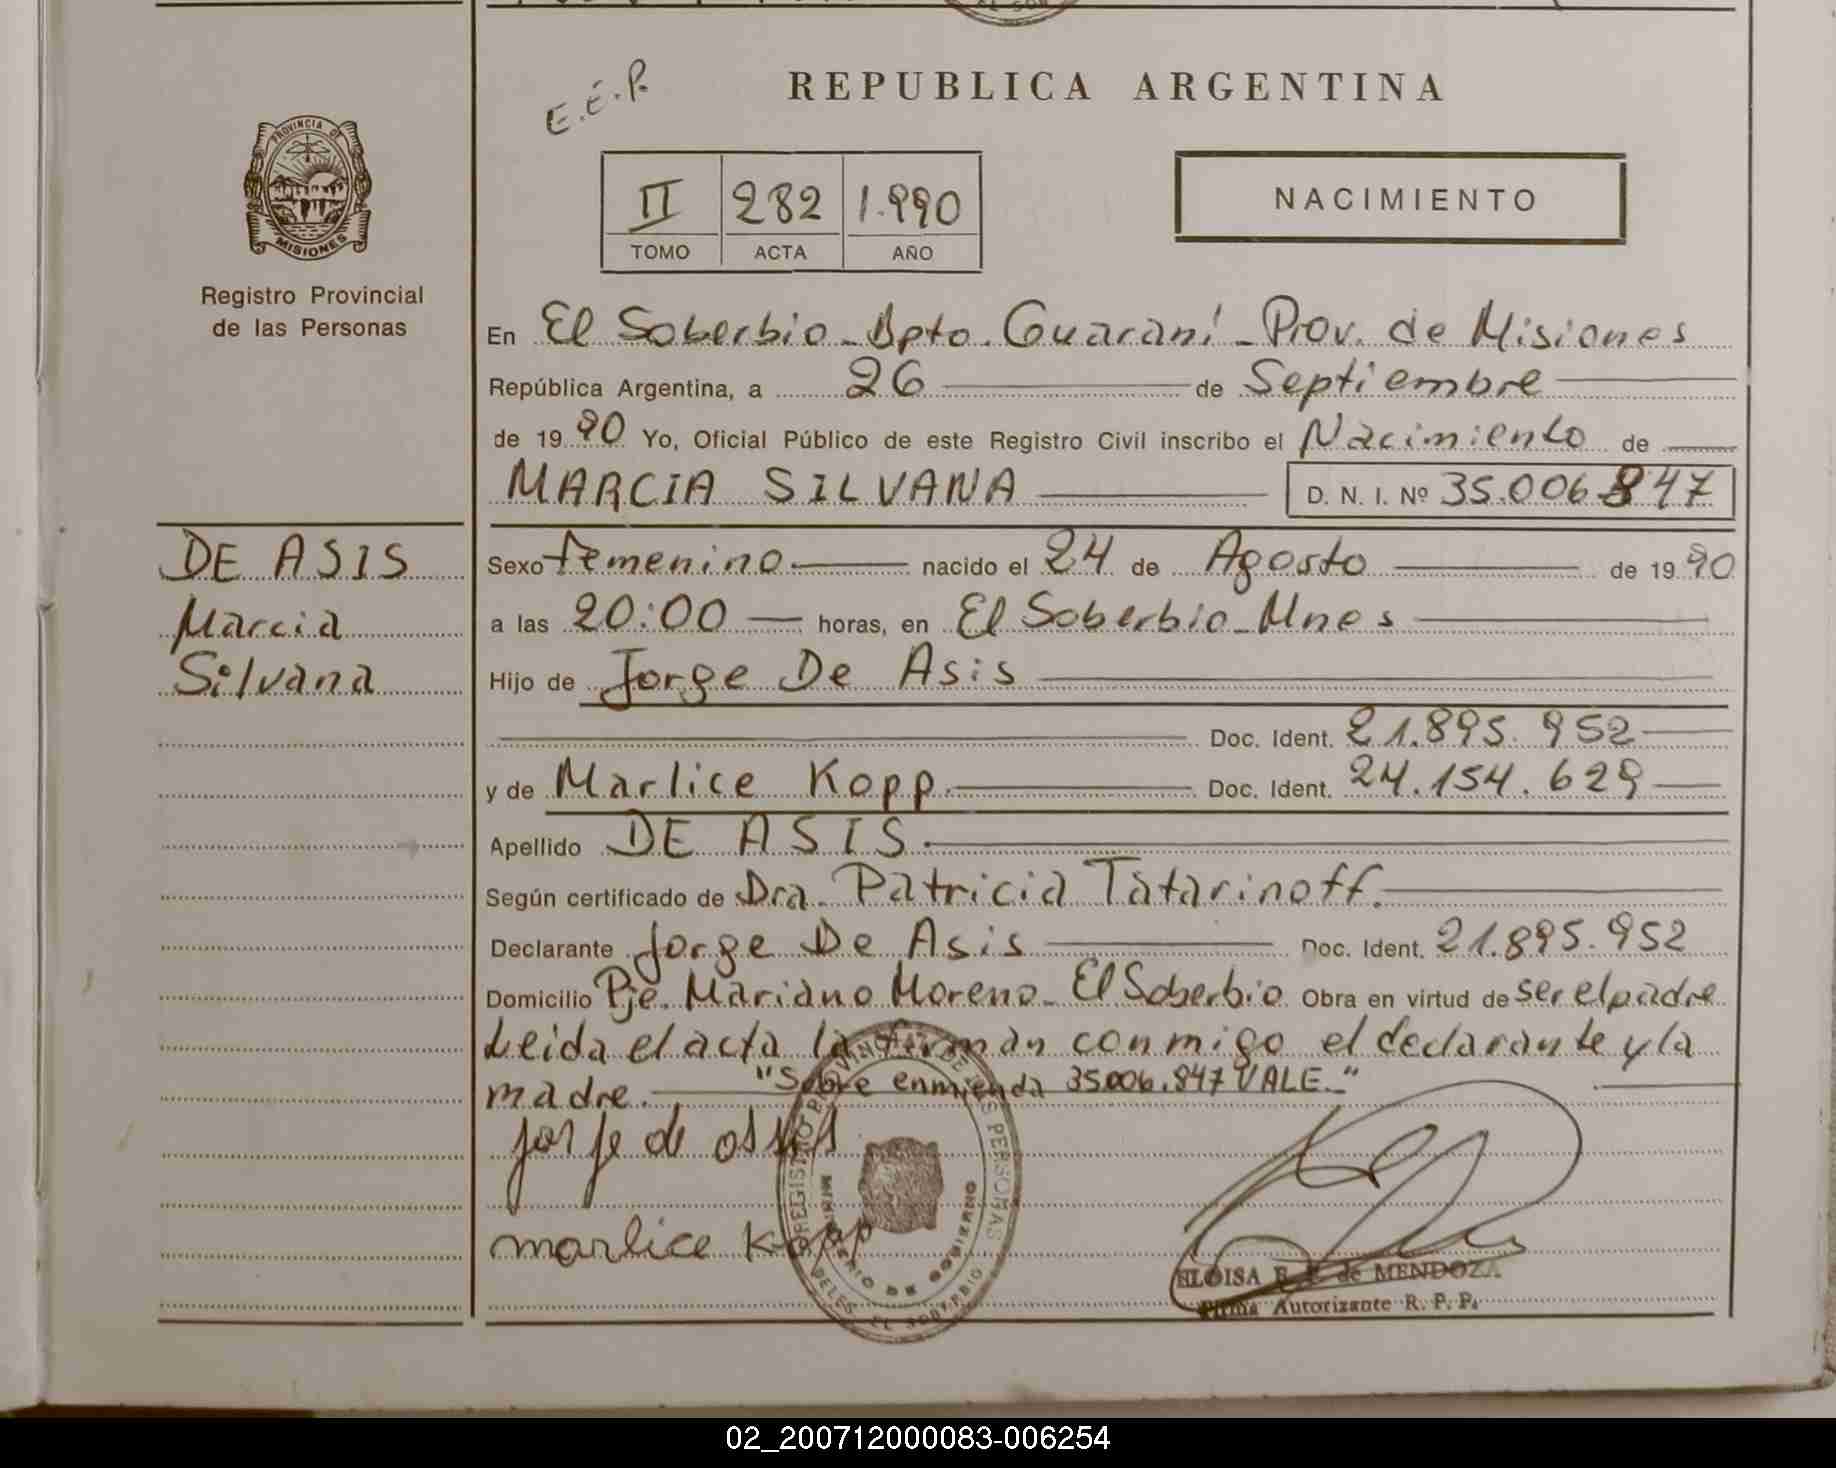 E.E.P.
REPUBLICA ARGENTINA
PROVINCIA DE
MISIONES
II 282 1.990
TOMO ACTA AÑO
NACIMIENTO
Registro Provincial
de las Personas
En El Soberbio - Dpto. Guaraní - Prov. de Misiones
República Argentina, a 26 de Septiembre
de 19 90 Yo, Oficial Público de este Registro Civil inscribo el Nacimiento de
MARCIA SILVANA D. N. I. Nº 35.006 847
DE ASIS
Marcia
Silvana
Sexo femenino nacido el 24 de Agosto de 19 90
a las 20:00 horas, en El Soberbio - Mnes
Hijo de Jorge De Asis
Doc. Ident. 21.895.952
y de Marlice Kopp Doc. Ident. 24.154.629
Apellido DE ASIS.
Según certificado de Dra. Patricia Tatarinoff.
Declarante Jorge De Asis Doc. Ident. 21.895.952
Domicilio Pje. Mariano Moreno - El Soberbio Obra en virtud de ser el padre
Leida el acta la firman conmigo el declarante y la
madre. "Sobre enmienda 35.006.847 VALE."
Jorje de assis
marlice Kopp
REGISTRO PROVINCIAL DE LAS PERSONAS
MINISTERIO DE GOBIERNO
EL SOBERBIO
ELOISA de MENDOZA
Firma Autorizante R. P. P.
02_200712000083-006254